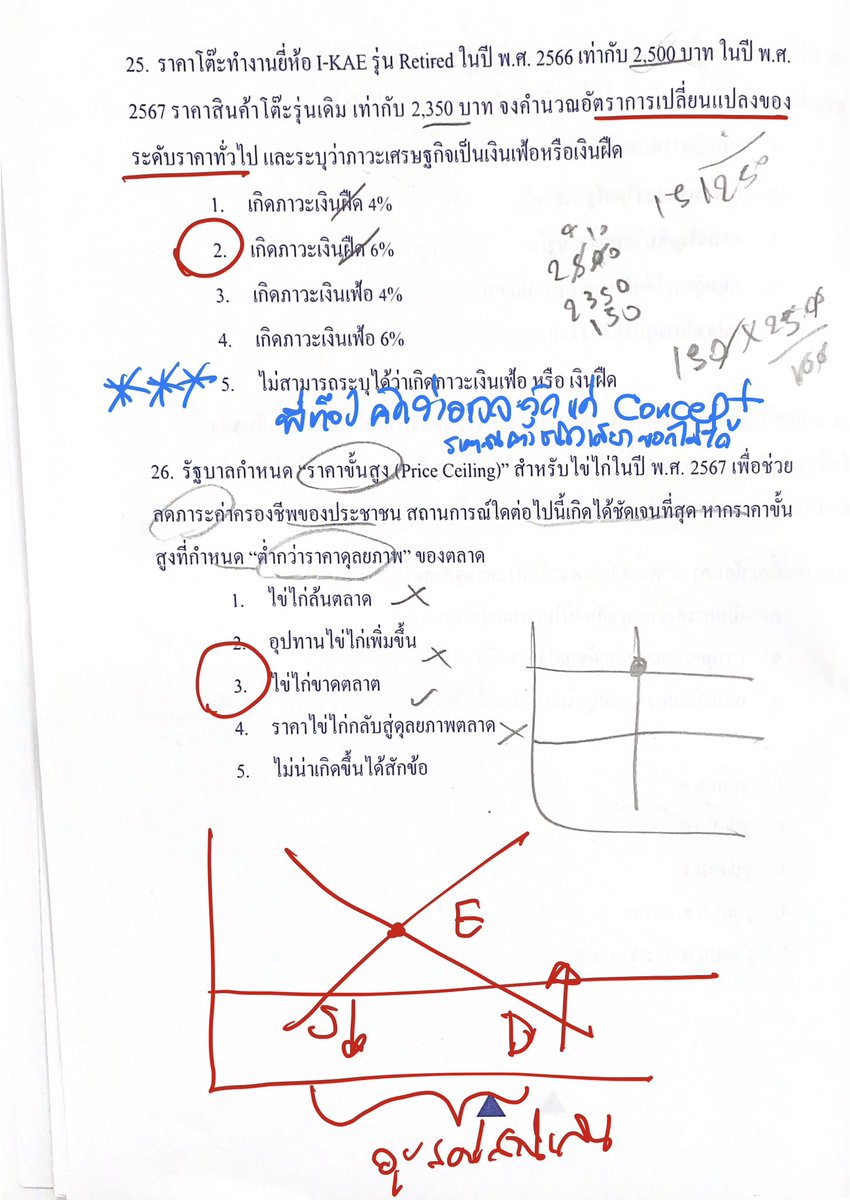 25. ราคาโต๊ะทำงานยี่ห้อ I-KAE รุ่น Retired ในปี พ.ศ. 2566 เท่ากับ 2,500 บาท ในปี พ.ศ.
2567 ราคาสินค้าโต๊ะรุ่นเดิม เท่ากับ 2,350 บาท จงคำนวณอัตราการเปลี่ยนแปลงของ
ระดับราคาทั่วไป และระบุว่าภาวะเศรษฐกิจเป็นเงินเฟ้อหรือเงินฝืด
1. เกิดภาวะเงินฝืด 4%
2. เกิดภาวะเงินฝืด 6%
3. เกิดภาวะเงินเฟ้อ 4%
4. เกิดภาวะเงินเฟ้อ 6%
5. ไม่สามารถระบุได้ว่าเกิดภาวะเงินเฟ้อ หรือ เงินฝืด
2500
2350
150
Concept
26. รัฐบาลกำหนด “ราคาขั้นสูง (Price Ceiling)” สำหรับไข่ไก่ในปี พ.ศ. 2567 เพื่อช่วย
ลดภาระค่าครองชีพของประชาชน สถานการณ์ใดต่อไปนี้เกิดได้ชัดเจนที่สุด หากราคาขั้น
สูงที่กำหนด “ต่ำกว่าราคาดุลยภาพ” ของตลาด
1. ไข่ไก่ล้นตลาด
2. อุปทานไข่ไก่เพิ่มขึ้น
3. ไข่ไก่ขาดตลาด
4. ราคาไข่ไก่กลับสู่ดุลยภาพตลาด
5. ไม่น่าเกิดขึ้นได้สักข้อ
E
S
D